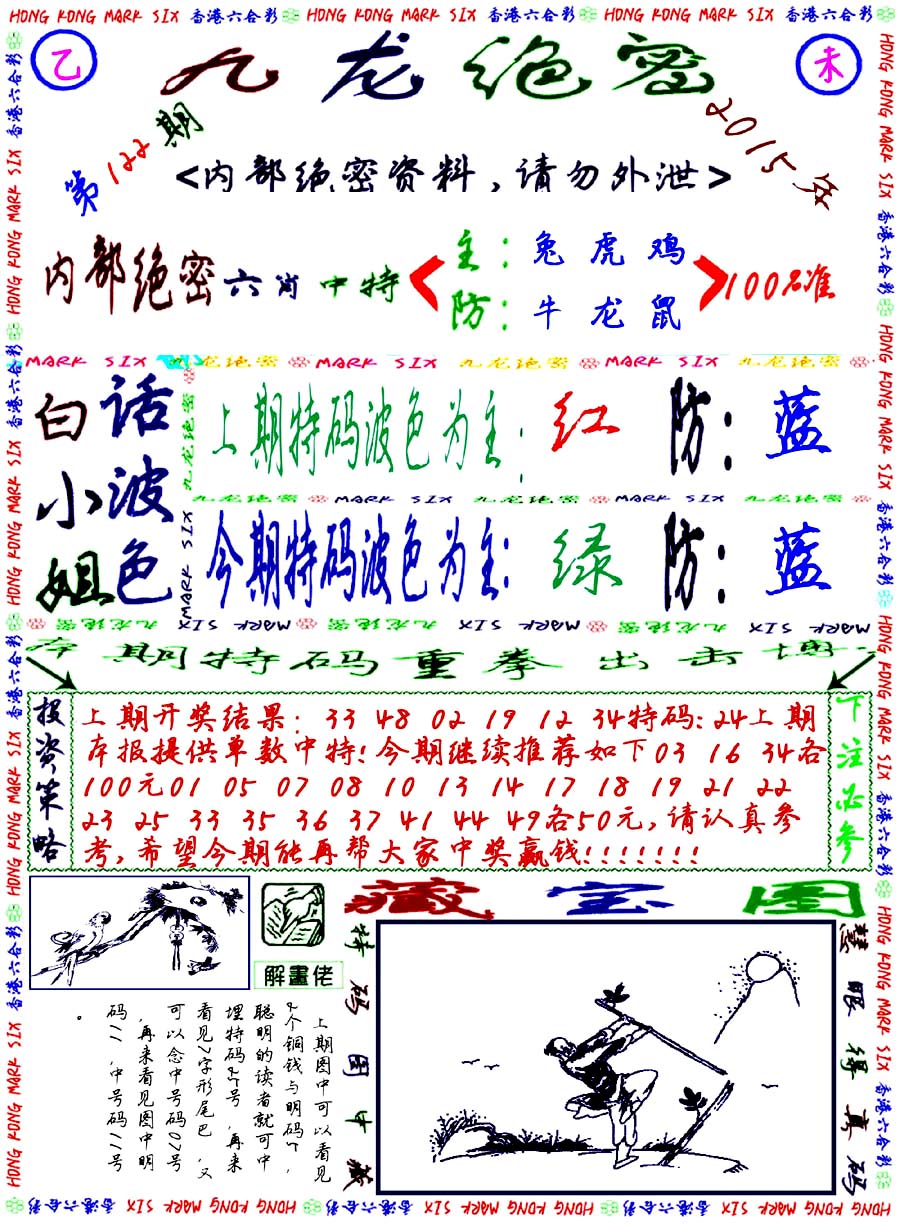 HONG KONG MARK SIX 香港六合彩 HONG KONG MARK SIX 香港六合彩 HONG KONG MARK SIX 香港六合彩
乙
九龙绝密
未
第122期
2015年
<内部绝密资料,请勿外泄>
内部绝密六肖中特
主:兔虎鸡
防:牛龙鼠
100%准
MARK SIX 九龙绝密 MARK SIX 九龙绝密 MARK SIX 九龙绝密
白小姐
话波色
上期特码波色为主:红 防:蓝
九龙绝密 MARK SIX 九龙绝密 MARK SIX 九龙绝密
今期特码波色为主:绿 防:蓝
九龙绝密 MARK SIX 九龙绝密 MARK SIX 九龙绝密 MARK SIX
本期特码重拳出击博
投资策略
上期开奖结果:33 48 02 19 12 34特码:24上期
本报提供单数中特!今期继续推荐如下03 16 34各
100元01 05 07 08 10 13 14 17 18 19 21 22
23 25 33 35 36 37 41 44 49各50元,请认真参
考,希望今期能再帮大家中奖赢钱!!!!!!!
下注必参
解畫佬
藏宝图
特码图中藏
慧眼得真码
上期图中可以看见
个铜钱与明码
聪明的读者就可中
埋特码 号,再来
看见7字形尾巴,又
可以念中号码07号
,再来看见图中明
码11,中号码11号
。
HONG KONG MARK SIX 香港六合彩 HONG KONG MARK SIX 香港六合彩 HONG KONG MARK SIX 香港六合彩